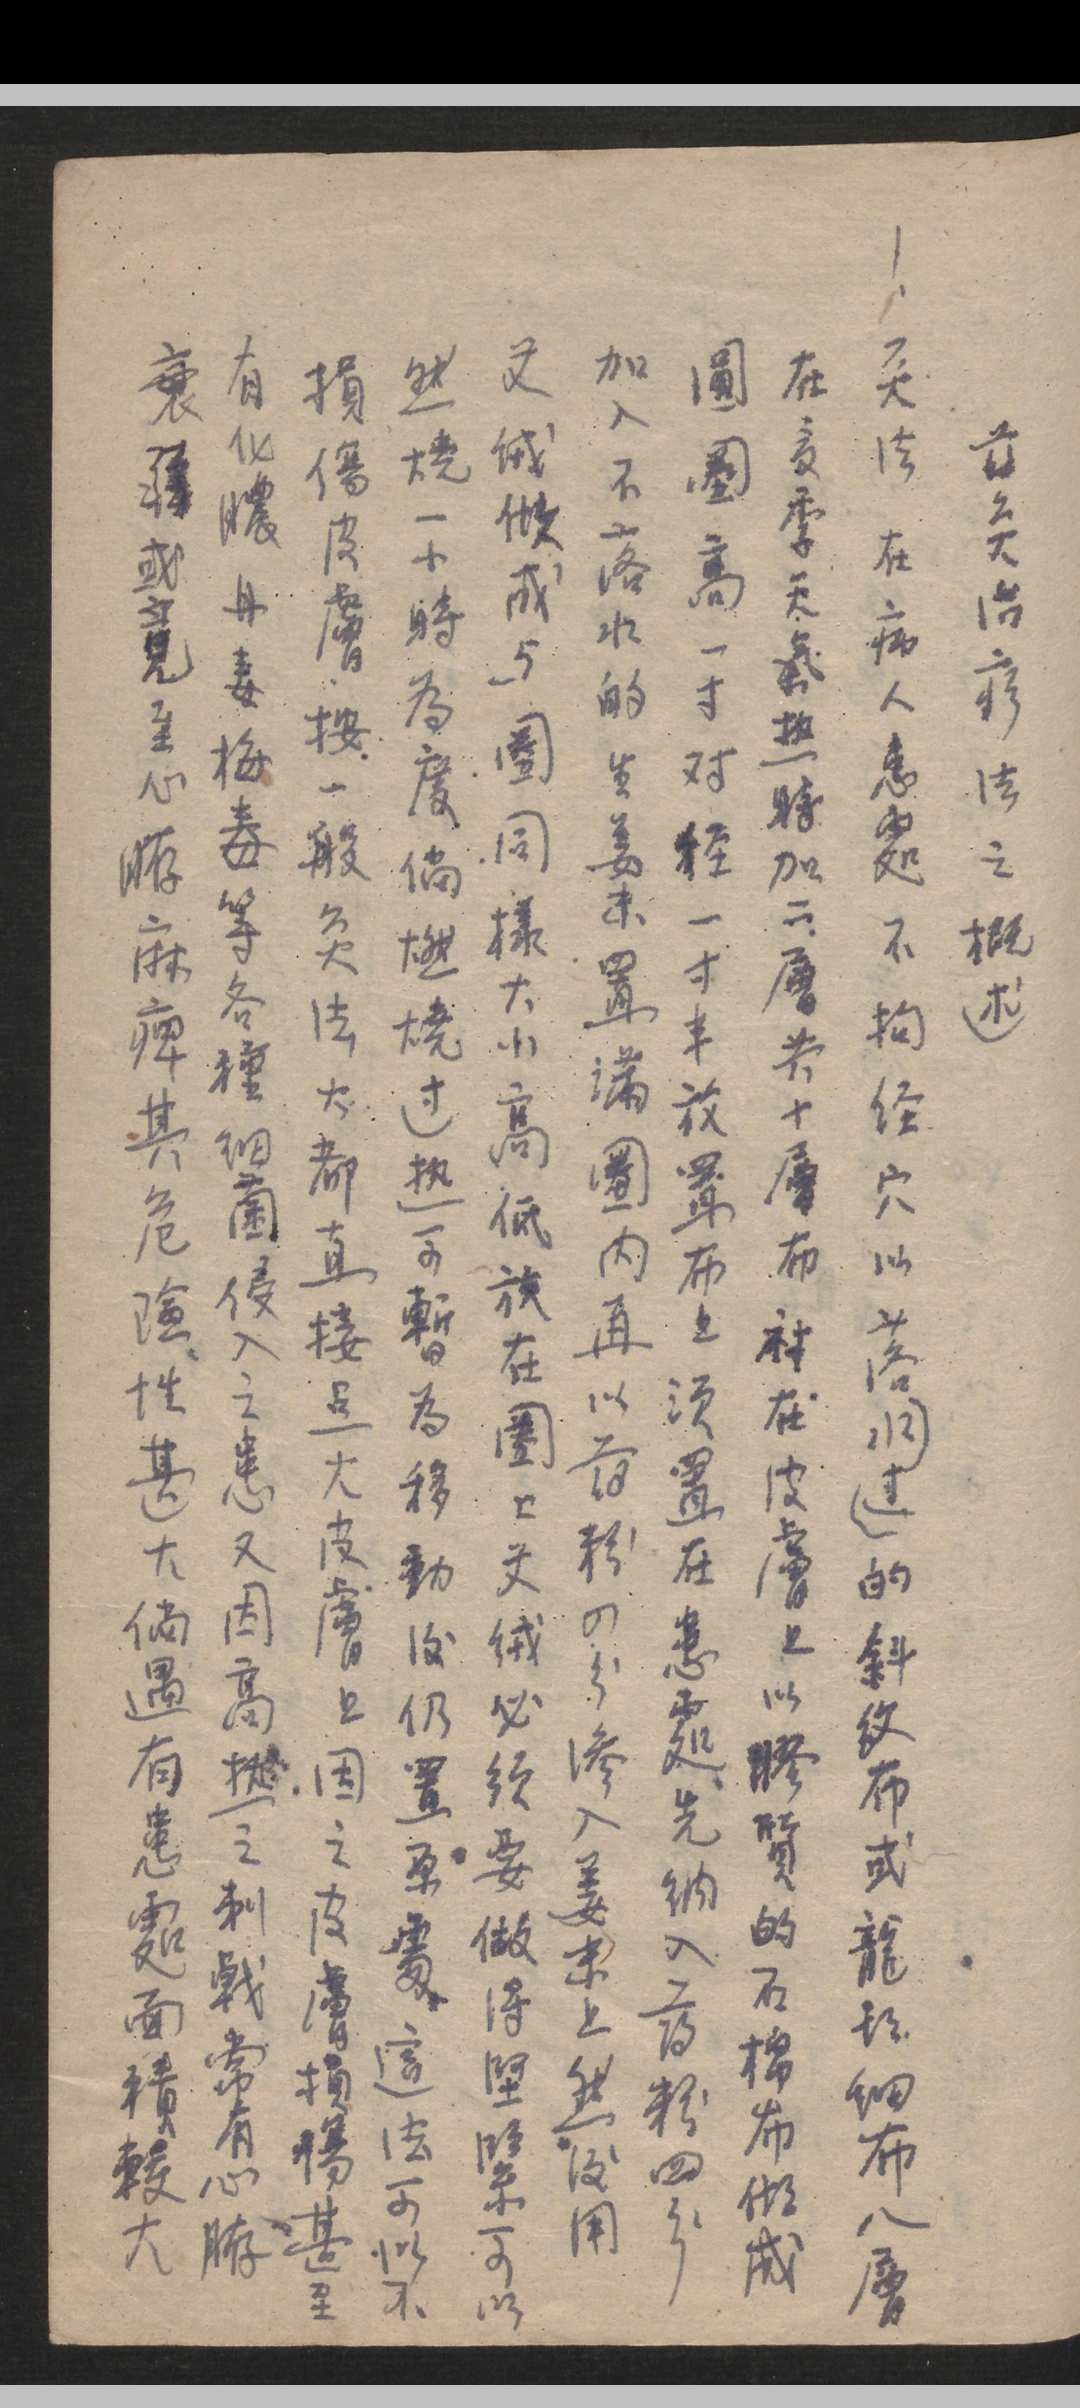 艾灸治疗法之概述
一、灸法 在病人患處不拘经穴以落水过的斜纹布或龍頭细布八層
在夏季天氣热時加二層共十層布衬在皮膚上以膠質的石棉布做成
圓圈高一寸对徑一寸半放置布上须置在患處先纳入药粉四分
加入不落水的生姜末置满圈内再以药粉四分渗入姜末上然後用
艾绒做成与圈同樣大小高低放在圈上艾绒必须要做得堅緊可以
然燒一小時為度倘燃燒过热可暫為移動後仍置原處 這法可以不
損傷皮膚按一般灸法大都直接点火皮膚上因之皮膚損傷甚至
有化膿丹毒梅毒等各種细菌侵入之患又因高热之刺戟常有心臟
衰弱或竟至心臟麻痺其危險性甚大倘遇有患處面積較大